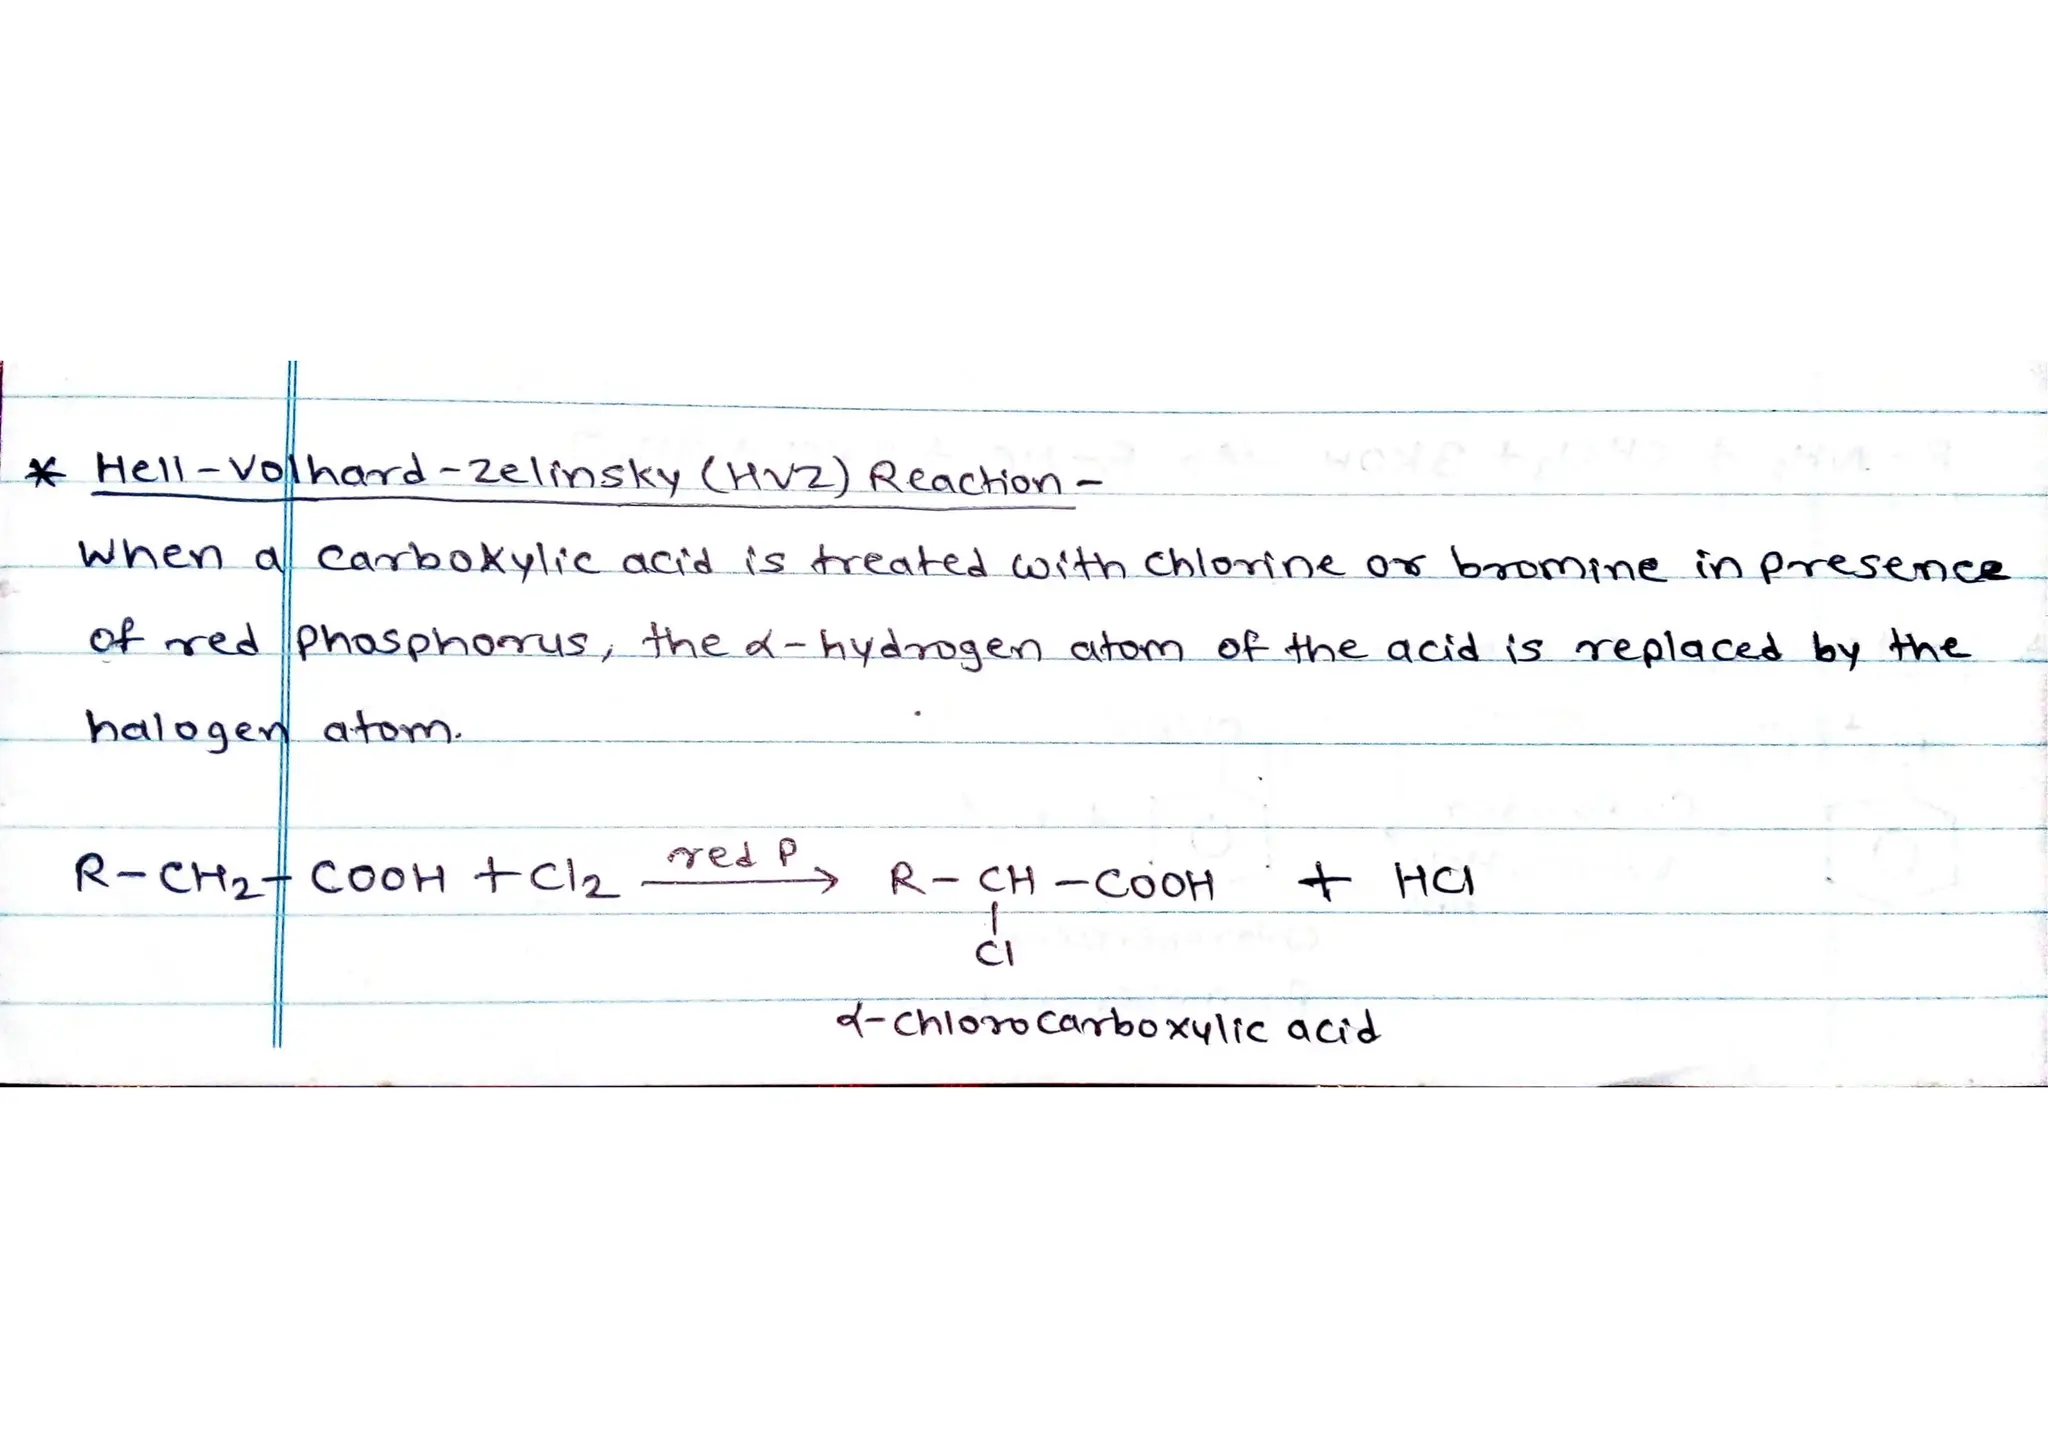 * Hell-Volhard-Zelinsky (HVZ) Reaction -
When a carboxylic acid is treated with chlorine or bromine in presence
of red phosphorus, the α-hydrogen atom of the acid is replaced by the
halogen atom.
R-CH2-COOH + Cl2 red P → R-CH-COOH + HCl
Cl
α-chlorocarboxylic acid